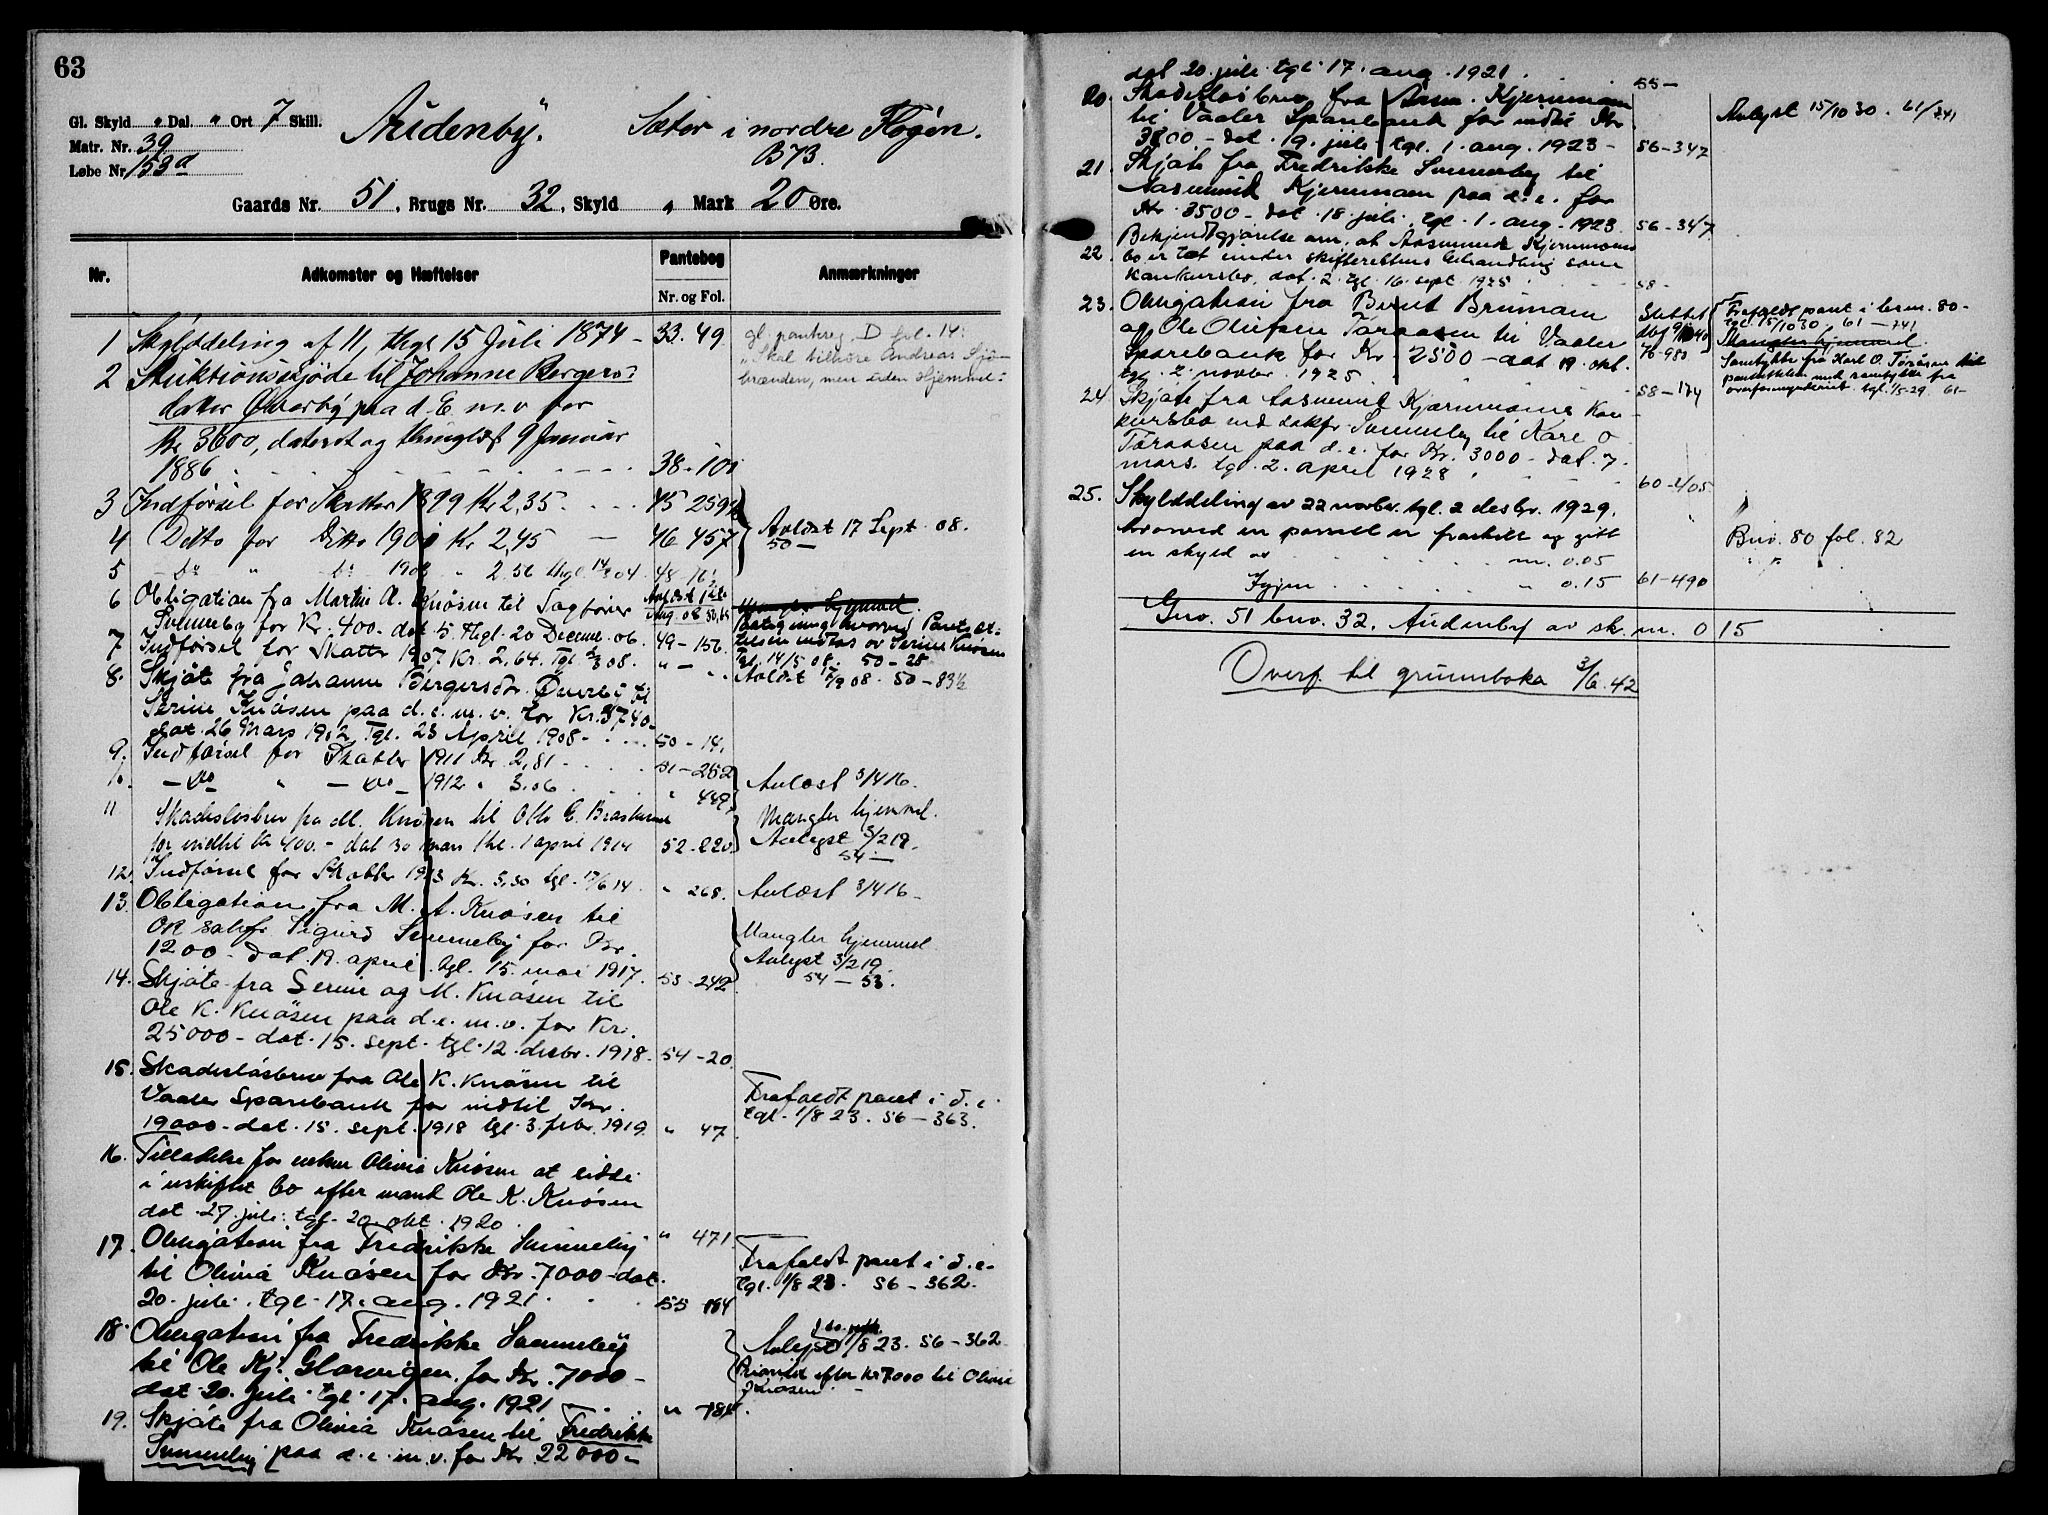 63
Gl. Skyld „ Dal. „ Ort 7 Skill.
Matr. Nr. 39
Løbe Nr. 153d
Audenby. Sæter i nordre Flogen.
B73.
Gaards Nr. 51, Brugs Nr. 32, Skyld „ Mark 20 Øre.
Nr. Adkomster og Hæftelser Pantebog Anmærkninger
Nr. og Fol.
1 Skylddeling af 11, thgl 15 Juli 1874 - 33. 49
gl. pantreg. D fol. 14:
"Skal tilhøre Andreas Sjö-
brænden, men uden Hjemmel:
2 Auktionsskjöde til Johanne Bergers-
datter Overby paa d. E. m. v. for
Kr 3600, dateret og thinglæst 9 Januar
1886 38-101
3 Indførsel for Skatter 1899 Kr 2,35 45 259
4 Ditto for Ditto 1901 Kr 2,45 — 46 457
Avlæst 17 Sept. 08.
50 —
5 - do " - do 1903 " 2.56 thgl. 04 48-16
6 Obligation fra Martin A. Knøsen til Sagfører
Sunneby for Kr. 400. dat 5. Thgl. 20 Decemr. 06. 49-156
Avlæst
Aug. 08 50,
Mangler hjemmel.
Paategning hvorved Pant
vedtas av Serine Knøsen
Tgl. 14/5 08. 50-28
7 Indførsel for Skatter 1907 Kr. 2,64. Tgl. 08. " —
Avlæst 08. 50-83½
8. Skjöte fra Johanne Bergersdr. Overby til
Serine Knøsen paa d. e. m. v. for Kr. 3740-
dat. 26 Mars 1902 Tgl. 23 April 1908 - 50-14,
9. Indførsel for Skatter 1911 Kr. 2,81 51-252
10. — do " — do — 1912 " 3.06 " 449
Avlæst 3/4 16.
11 Skadesløsbrev fra M. Knøsen til Otto E. Braskerud
for indtil Kr 400.- dat 30 mars thl. 1 april 1914 52-220
Mangler hjemmel.
Avlyst 3/2 19.
54 —
12. Indførsel for Skatter 1913 Kr. 3,30 tgl. 17/6 14. " 268. Avlæst 3/4 16-
13. Obligation fra M. A. Knøsen til
OR sakfr. Sigurd Sunneby for Kr.
1200 - dat. 19. april. tgl. 15. mai 1917. 53-242
Mangler hjemmel
Avlyst 3/2 19.
54 — 53.
14. Skjöte fra Serine og M. Knøsen til
Ole K. Knøsen paa d. e. m. v. for Kr.
25000 - dat. 15. sept. tgl. 12. desbr. 1918. 54-20
15. Skadesløsbrev fra Ole K. Knøsen til
Vaaler Sparebank for indtil Kr.
19000 - dat. 15. sept. 1918 tgl. 3. febr. 1919. " 47
Frafaldt pant i d. e.
tgl. 1/8 23. 56 — 363.
16. Tilladelse for enken Olivia Knøsen at sidde
i uskiftet bo efter mand Ole K. Knøsen
dat. 27. juli. tgl. 20. okt. 1920. " 471
17. Obligation fra Fredrikke Sunneby
til Olivia Knøsen for Kr. 7000 - dat.
20. juli. tgl. 17. aug. 1921. 55 184
Frafaldt pant i d. e.
tgl. 1/8 23. 56 — 362.
18. Obligation fra Fredrikke Sunneby
til Ole Kj. Glorvigen for Kr. 7000 -
dat. 20. juli. tgl. 17. aug. 1921 " 184.
Avlyst 1/8 23. 56 — 362
Prioritet efter Kr 7000 til Olivia
Knøsen. —
19. Skjöte fra Olivia Knøsen til Fredrikke
Sunneby paa d. e. m. v. for Kr. 22000 -
dat. 20. juli. tgl. 17. aug. 1921. 55 —
20. Skadesløsbrev fra Aasm. Kjernmoen
til Vaaler Sparebank for indtil Kr.
3800. - dat. 19. juli tgl. 1. aug. 1923 - 56-347
Avlyst 15/10 30. 61/241
21. Skjöte fra Fredrikke Sunneby til
Aasmund Kjernmoen paa d. e. for
Kr. 3500 - dat. 18. juli. tgl. 1. aug. 1923. 56-347
22. Bekjendtgjørelse om, at Aasmund Kjernmoens
bo er tat under skifterettens behandling som
konkursbo. dat. 2. tgl. 16. sept. 1925 58 -
23. Obligation fra Bernt Brumoen
og Ole Olufsen Toraasen til Vaaler
Sparebank for Kr. 2500 - dat 19. okt.
tgl. 2. novbr. 1925. 58-174
Slettet
76-980
Frafaldt pant i brnr. 80 -
tgl. 15/10 30. 61 — 241
Mangler hjemmel.
Samtykke fra Karl O. Toråsen til
pantsettelse med samtykke fra
overformynderiet. tgl. 1/5-29 61-
24. Skjöte fra Aasmund Kjærnmoens Kon-
kursbo ved sakfr. Sunneby til Kare O.
Toraasen paa d. e. for Kr. 3000 - dat. 7.
mars. tgl. 2. april 1928 60-405
25. Skylddeling av 22 novbr. tgl. 2 desbr. 1929.
hvorved en parsel er fraskilt og gitt
en skyld av m. 0.05
Igjen " 0.15 61-490
Brnr. 80 fol. 82
Gnr. 51 bnr. 32. Audenby av sk. m. 0 15
Overf. til grunnboka 3/6. 42